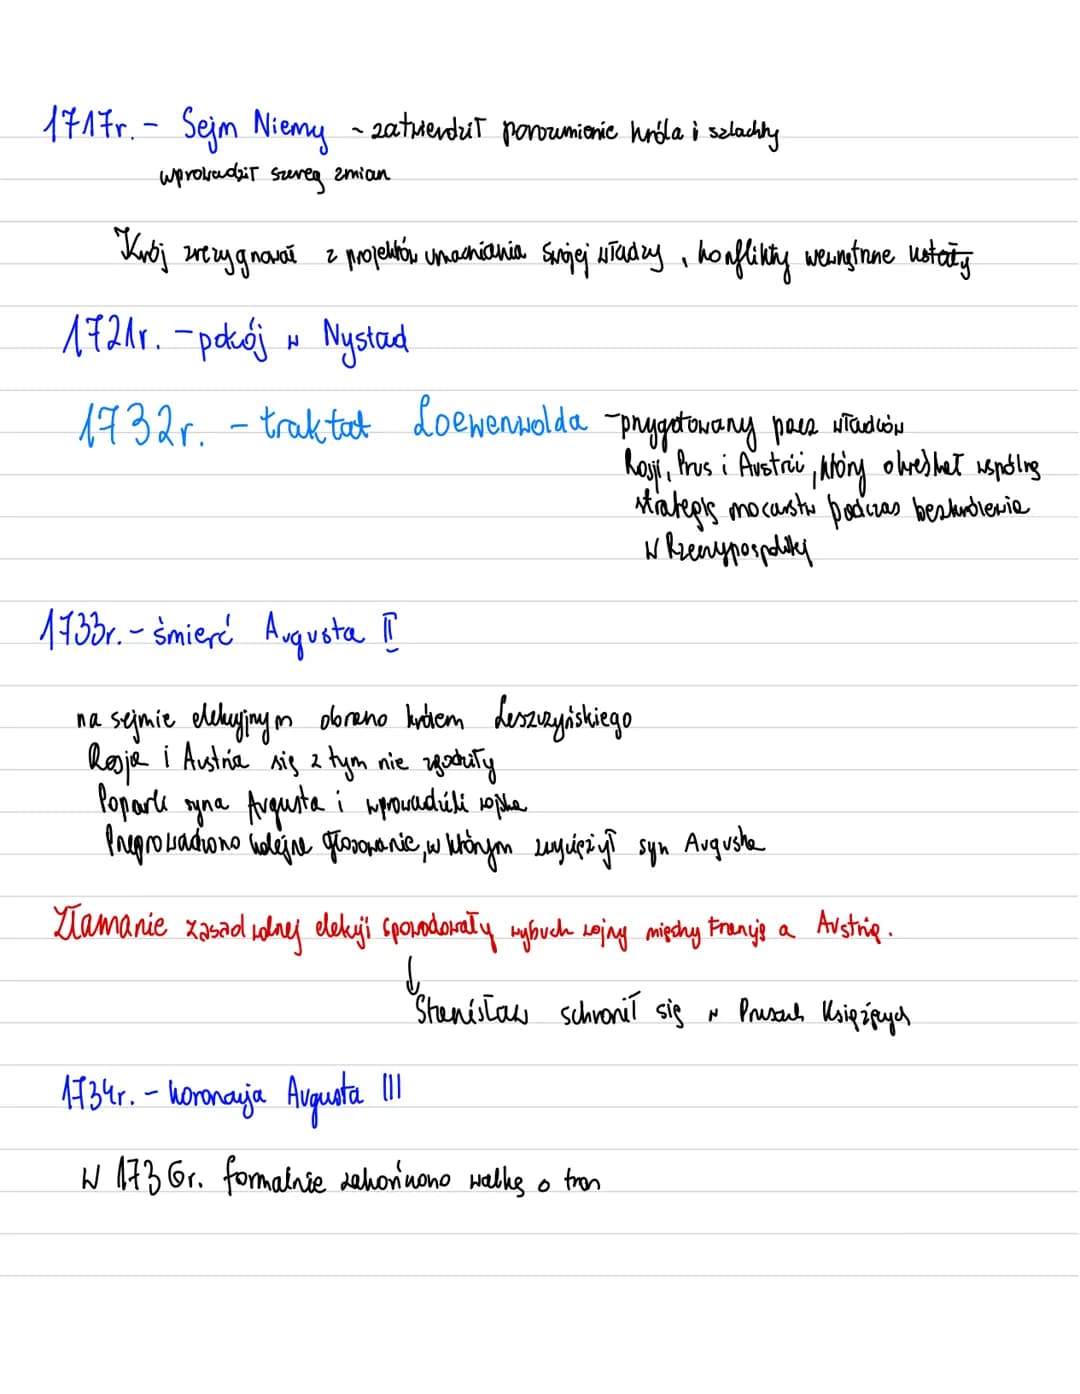 1717r. - Sejm Niemy ~ zatwierdził porozumienie króla i szlachty
wprowadził szereg zmian
Król zrezygnował z projektów umacniania swojej władzy, konflikty wewnętrzne ustały
1721r. - pokój w Nystad
1732r. - traktat Loewenwolda - przygotowany przez władców
Rosji, Prus i Austrii, który określał wspólną
strategię mocarstw podczas bezkrólewia
w Rzeczypospolitej
1733r. - śmierć Augusta II
na sejmie elekcyjnym obrano królem Leszczyńskiego
Rosja i Austria się z tym nie zgodziły
Poparli syna Augusta i wprowadzili wojska
Przeprowadzono kolejne głosowanie, w którym zwyciężył syn Augusta
Złamanie zasad wolnej elekcji spowodowały wybuch wojny między Francją a Austrią.
↓
Stanisław schronił się w Prusach Książęcych
1734r. - koronacja Augusta III
W 1736r. formalnie zakończono walkę o tron